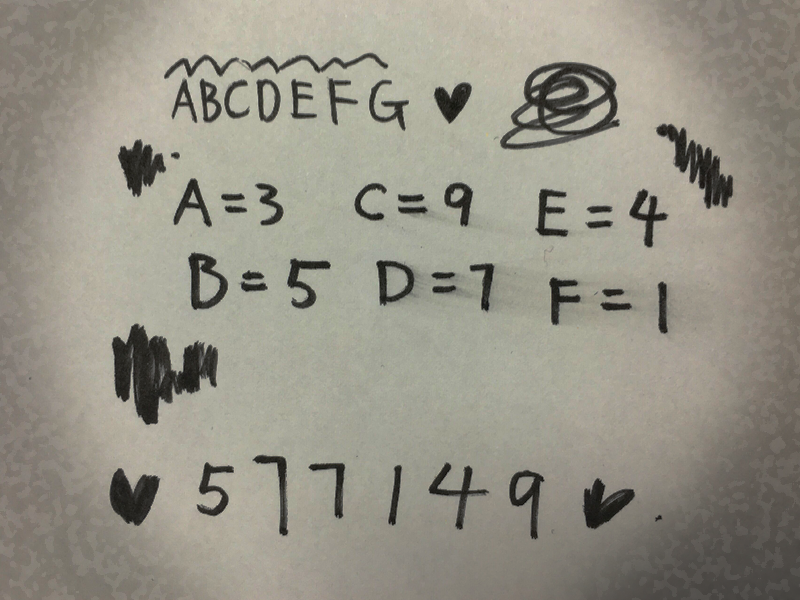 ABCDEFG
A=3 C=9 E=4
B=5 D=7 F=1
577149